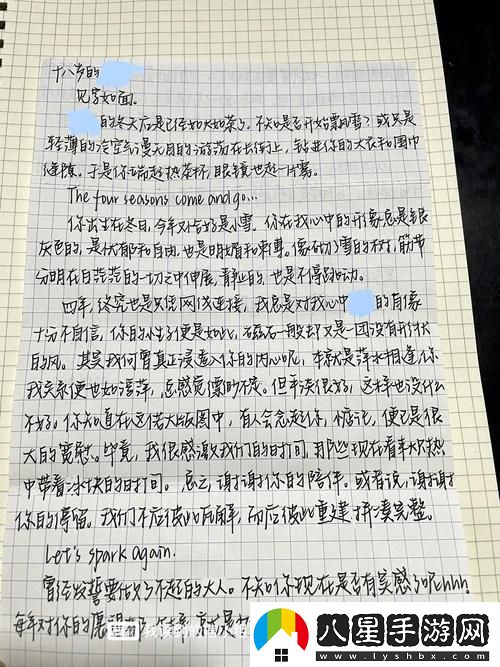 十八岁的
见字如面。
的冬天应是已经如火如荼了。不知是否开始飘雪？或只是
轻薄的冷空气漫无目的游荡在长街上，钻进你的大衣和围巾
缝隙。于是你端起热茶杯，眼镜也起一片雾。
The four seasons come and go...
你出生在冬日，今年对的好是小雪。你在我心中的形象总是银
灰色的，是忧郁和自由，也是明媚和刺骨。像初雪的树，筋节
分明在白茫茫的一切之中伸展，静止的，也是不停跃动。
四年，终究也是只凭网线连接，我总是对我心中 的肖像
十分不自信，你的性子便是如此，磁石一般却又是一团没有形状
的风。其实我何曾真正浸透入你的内心呢，本就是萍水相逢，你
我关系便也如浮萍，总感觉飘渺不定。但平淡很好，这样也没什么
不好。你知道在这偌大版图中，有人会念起你，惦记，便已是很
大的宽慰。毕竟，我很感激我们的时间，那些现在看来水热
中带着冰块的时间。总之，谢谢你的陪伴。或者说，谢谢
你的停留。我们不启彼此瓦解，而启彼此重建拼凑完整。
Let's spark again.
曾经发誓要做了不起的大人。不知你现在是否有实感了呢hhh。
每年对你的愿望
八星手游网
www.lyshbx.com